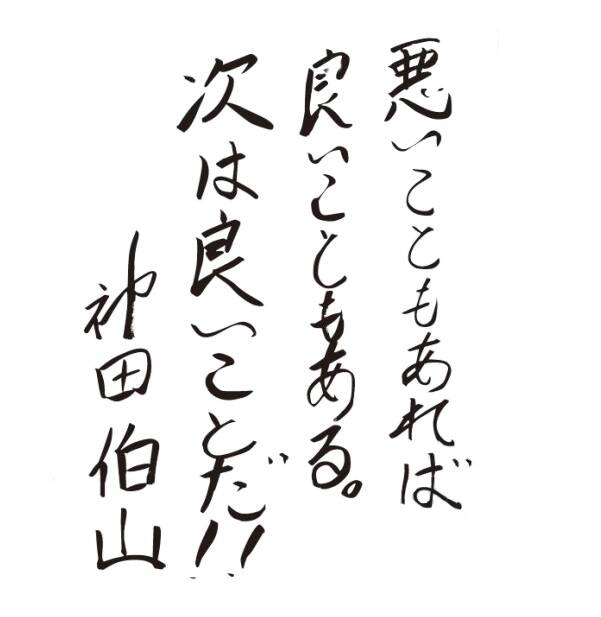 悪いこともあれば
良いこともある。
次は良いことだ!!
神田伯山